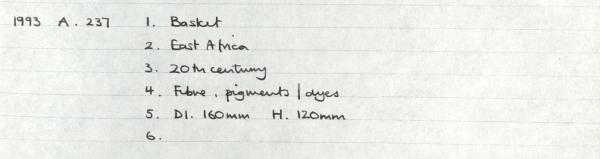 1993 A. 237 1. Basket
2. East Africa
3. 20th century
4. Fibre, pigments / dyes
5. DI. 160mm H. 120mm
6.